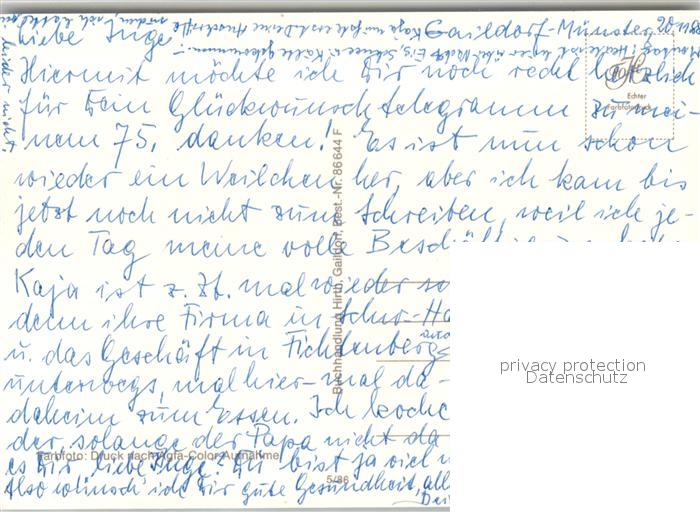 Gaildorf-Münster, 20.11.88
Liebe Inge!
Hiermit möchte ich Dir noch recht herzlich
für Dein Glückwunschtelegramm zu mei-
nem 75. danken! Es ist nun schon
wieder ein Weilchen her, aber ich kam bis
jetzt noch nicht zum Schreiben, weil ich je-
den Tag meine volle
Kaja ist z. Zt. mal wieder
dem ihre Firma in
u. das Geschäft in Fichtenberg
unterwegs, mal hier - mal da -
daheim zum Essen. Ich koche
der, solange der Papa nicht da
es Dir liebe Inge? Du bist ja viel
Also wünsch' ich Dir gute Gesundheit,
leider nicht.
Echter
Farbfotodruck
Buchhandlung Hirth, Gaildorf, Best.-Nr. 86644 F
Farbfoto: Druck nach Agfa-Color-Aufnahme
5/86
privacy protection
Datenschutz